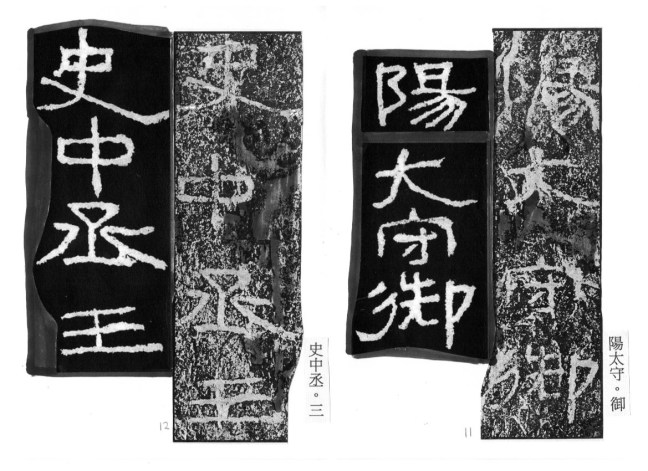 陽太守。御
陽大守御
11
陽大守御
史中丞。三
史中丞王
12
史中丞王